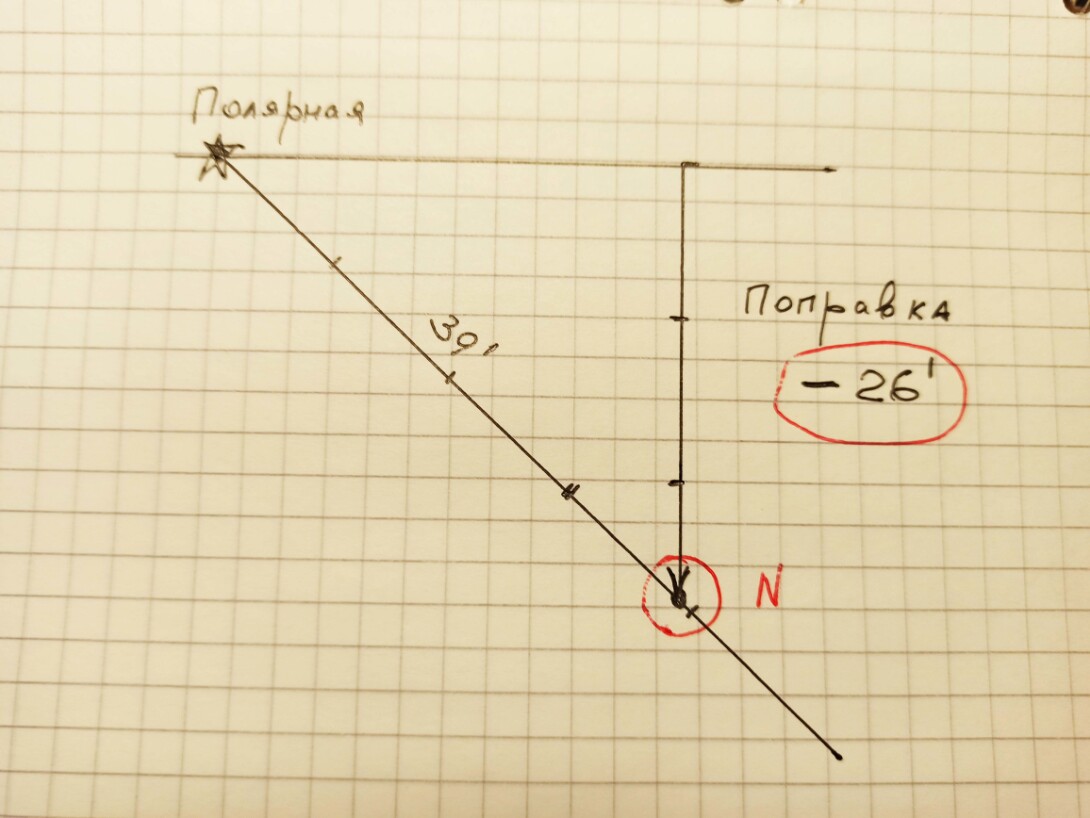 Полярная
39'
Поправка
- 26'
N